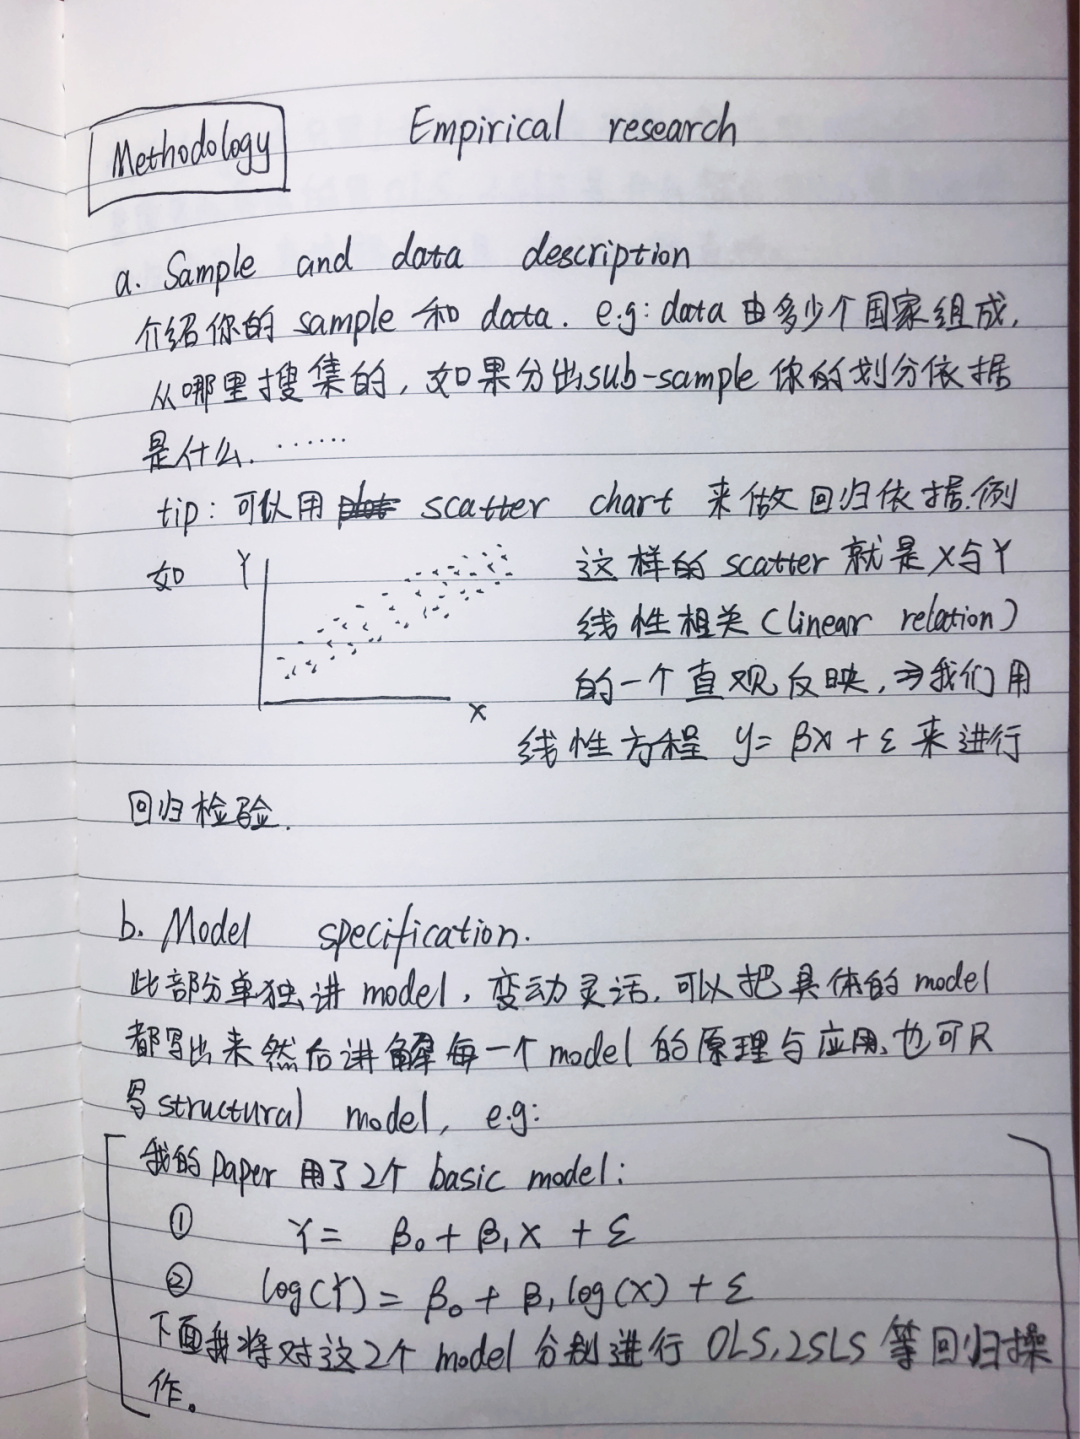 Methodology
Empirical research
a. Sample and data description
介绍你的 sample 和 data. e.g: data 由多少个国家组成,
从哪里搜集的, 如果分出sub-sample 你的划分依据
是什么. ……
tip: 可以用 plot scatter chart 来做回归依据.例
如
Y
X
这样的 scatter 就是 X与Y
线性相关 (linear relation)
的一个直观反映, ⇒我们用
线性方程 y= βx + ε 来进行
回归检验.
b. Model specification.
此部分单独讲 model, 变动灵活, 可以把具体的 model
都写出来然后讲解每一个 model 的原理与应用, 也可只
写 structural model, e.g:
我的 paper 用了2个 basic model:
① Y= β₀ + β₁X + ε
② log(Y) = β₀ + β₁ log(X) + ε
下面我将对这2个 model 分别进行 OLS, 2SLS 等回归操
作。